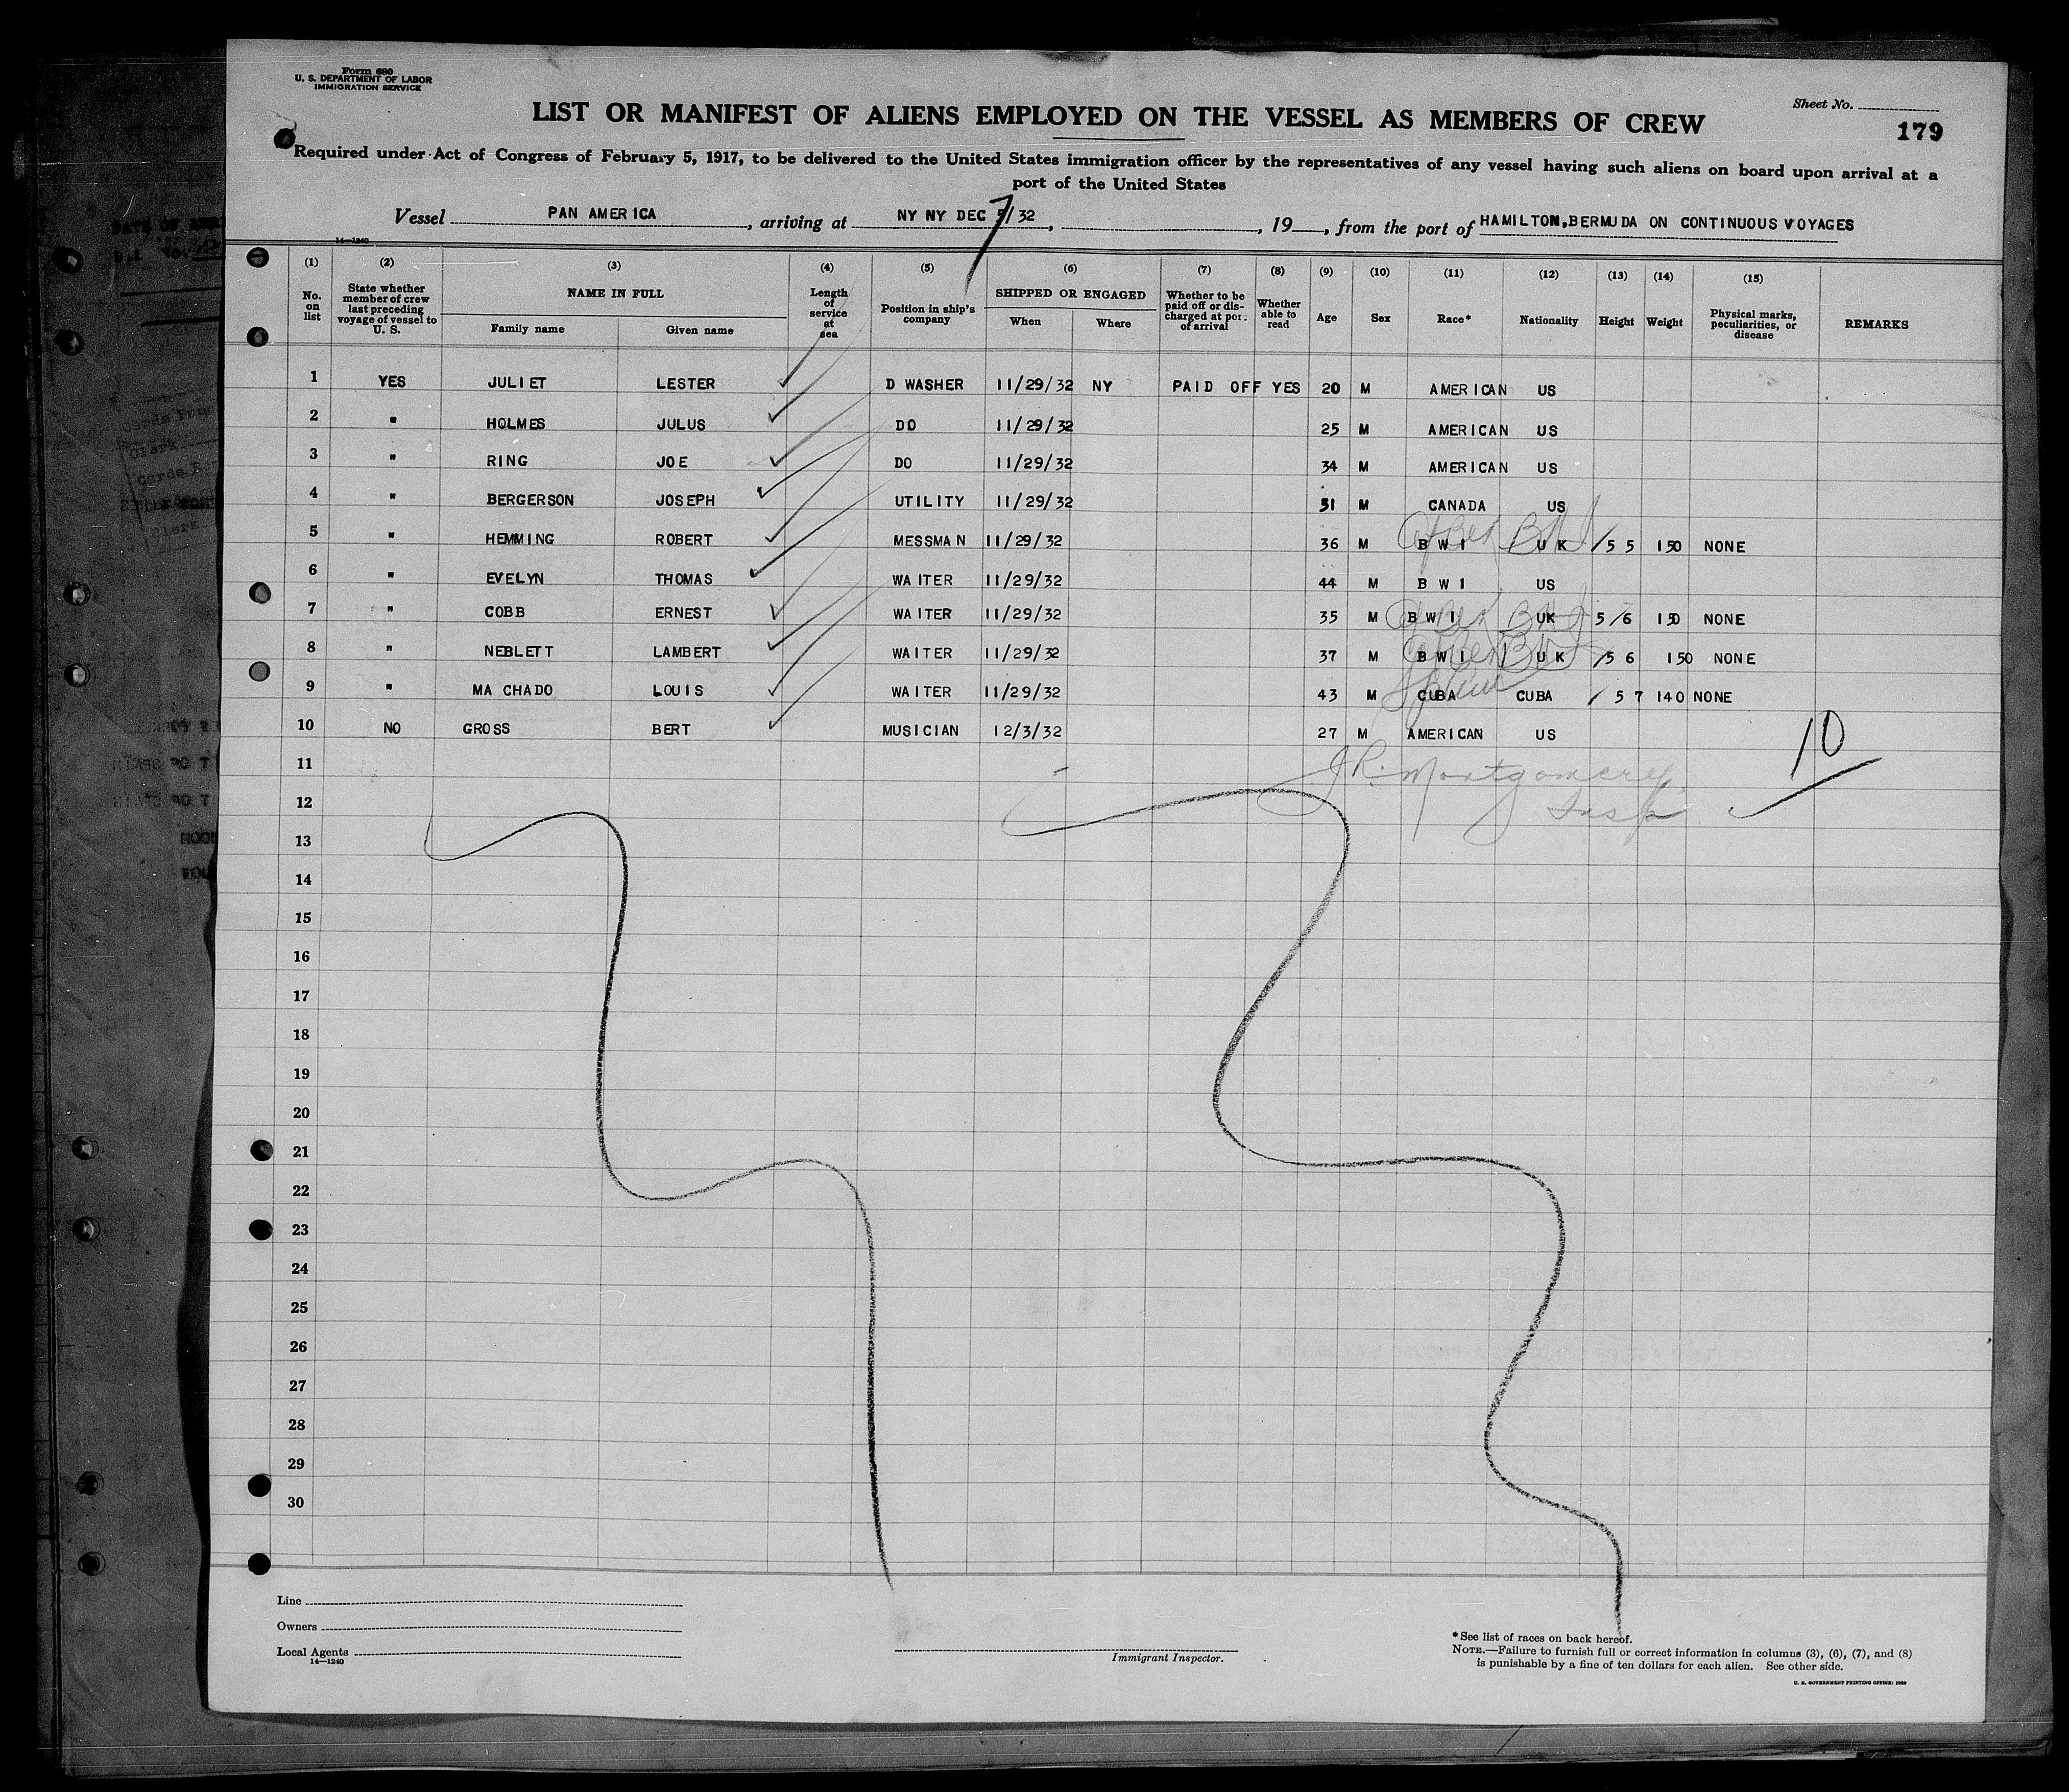 Form 680
U. S. DEPARTMENT OF LABOR
IMMIGRATION SERVICE
Sheet No.
179
LIST OR MANIFEST OF ALIENS EMPLOYED ON THE VESSEL AS MEMBERS OF CREW
Required under Act of Congress of February 5, 1917, to be delivered to the United States immigration officer by the representatives of any vessel having such aliens on board upon arrival at a
port of the United States
Vessel PAN AMERICA, arriving at NY NY DEC 7/32, , 19 , from the port of HAMILTON,BERMUDA ON CONTINUOUS VOYAGES
14—1240
(1) (2) (3) (4) (5) (6) (7) (8) (9) (10) (11) (12) (13) (14) (15)
No. on list
State whether member of crew last preceding voyage of vessel to U. S.
NAME IN FULL
Family name Given name
Length of service at sea
Position in ship's company
SHIPPED OR ENGAGED
When Where
Whether to be paid off or discharged at port of arrival
Whether able to read
Age Sex Race* Nationality Height Weight
Physical marks, peculiarities, or disease
REMARKS
1 YES JULIET LESTER D WASHER 11/29/32 NY PAID OFF YES 20 M AMERICAN US
2 " HOLMES JULUS DO 11/29/32 25 M AMERICAN US
3 " RING JOE DO 11/29/32 34 M AMERICAN US
4 " BERGERSON JOSEPH UTILITY 11/29/32 31 M CANADA US
5 " HEMMING ROBERT MESSMAN 11/29/32 36 M B W I U K 5 5 150 NONE
6 " EVELYN THOMAS WAITER 11/29/32 44 M B W I US
7 " COBB ERNEST WAITER 11/29/32 35 M B W I UK 5/6 150 NONE
8 " NEBLETT LAMBERT WAITER 11/29/32 37 M B W I U K 5 6 150 NONE
9 " MACHADO LOUIS WAITER 11/29/32 43 M CUBA CUBA 5 7 140 NONE
10 NO GROSS BERT MUSICIAN 12/3/32 27 M AMERICAN US
10
11
J R. Montgomery
12
Insp
13
14
15
16
17
18
19
20
21
22
23
24
25
26
27
28
29
30
Line
Owners
Local Agents
14—1240
Immigrant Inspector.
* See list of races on back hereof.
NOTE.—Failure to furnish full or correct information in columns (3), (6), (7), and (8)
is punishable by a fine of ten dollars for each alien. See other side.